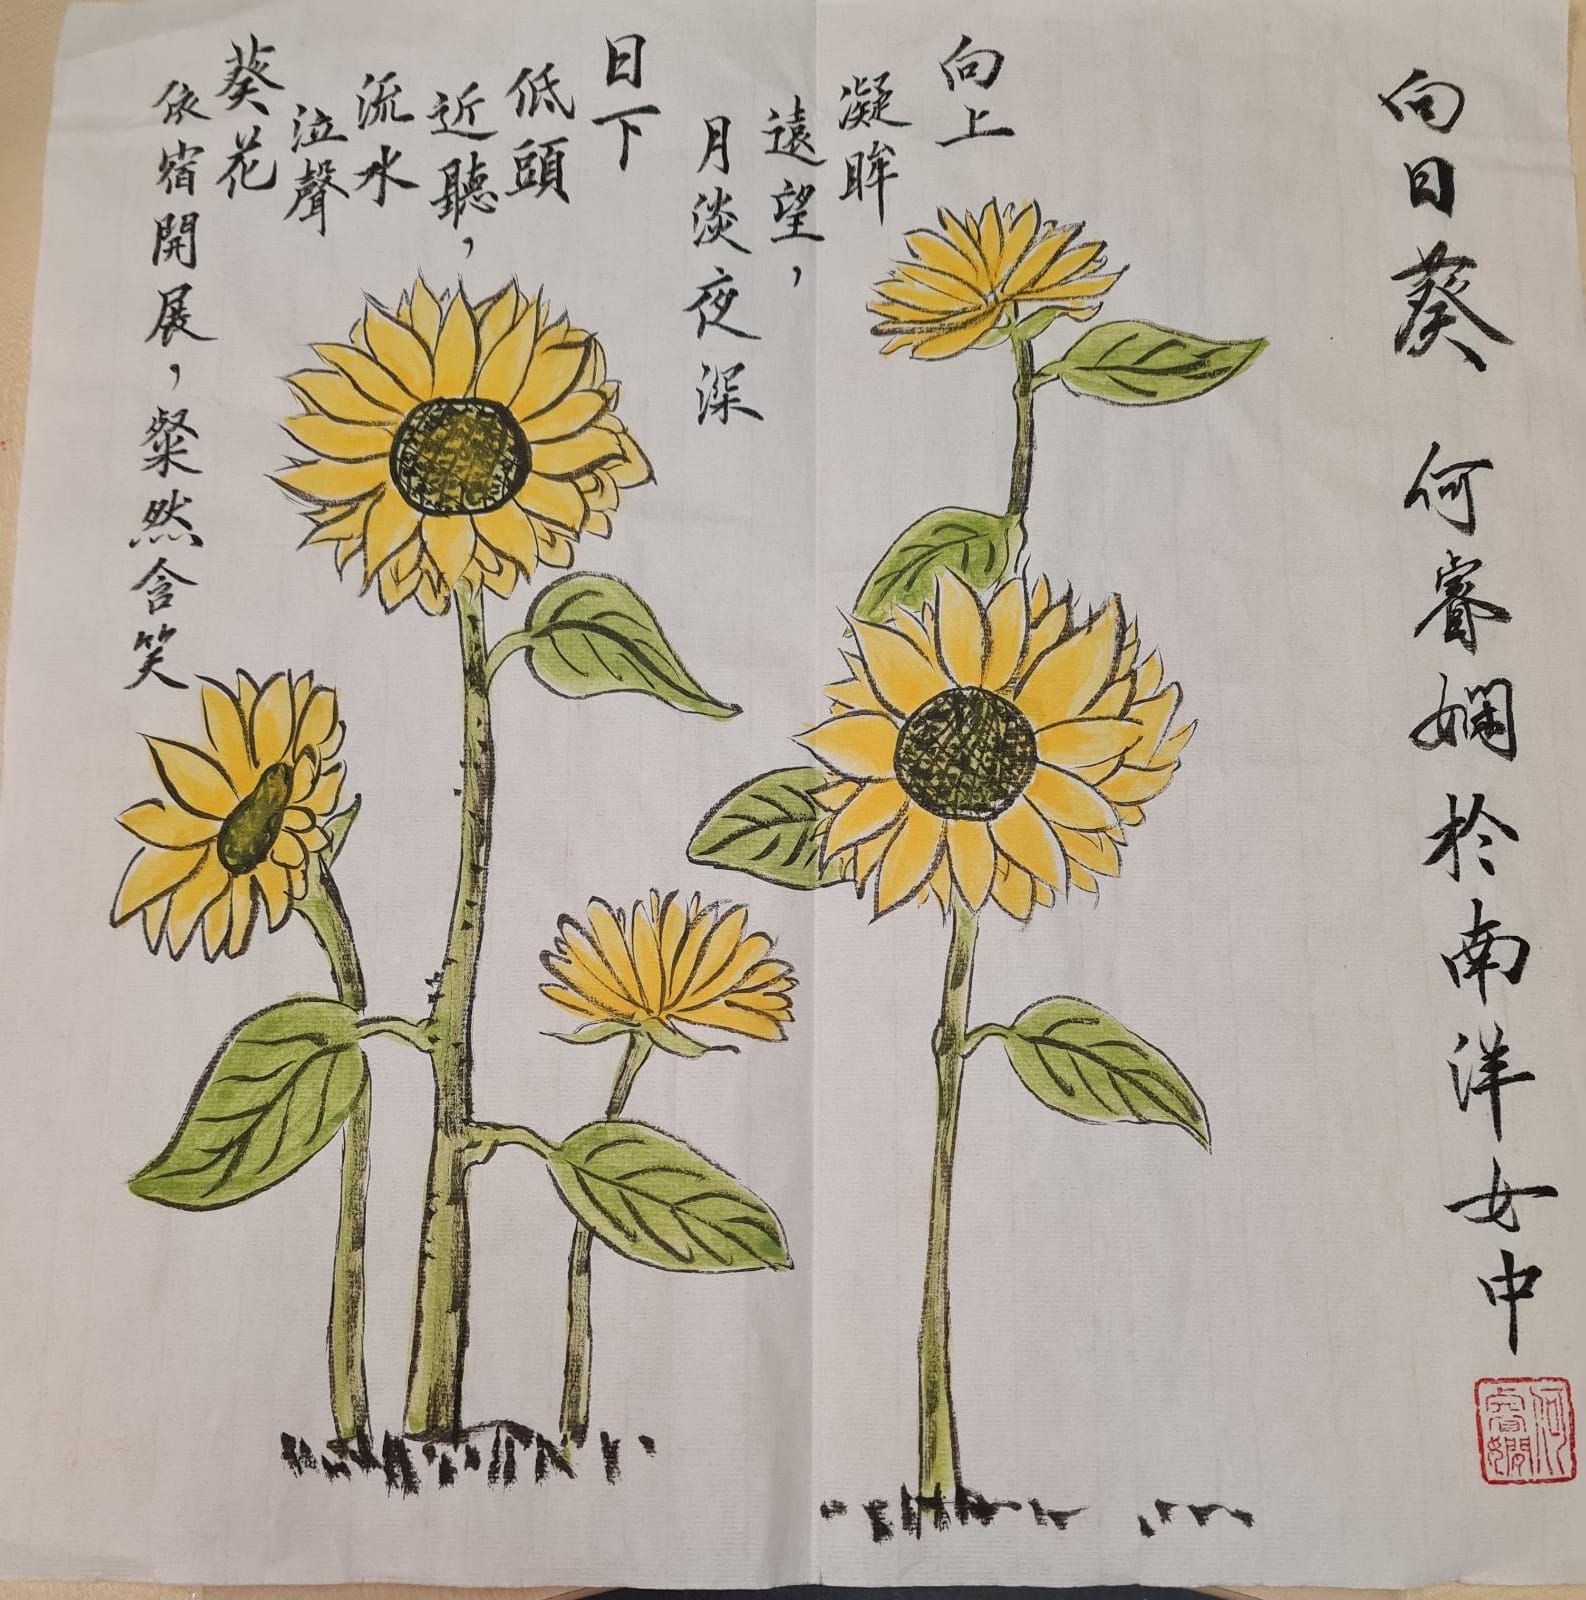 向日葵 何睿嫻於南洋女中
向上
凝眸
遠望，
月淡夜深
日下
低頭
近聽，
流水
泣聲
葵花
依宿開展，粲然含笑
何睿嫻